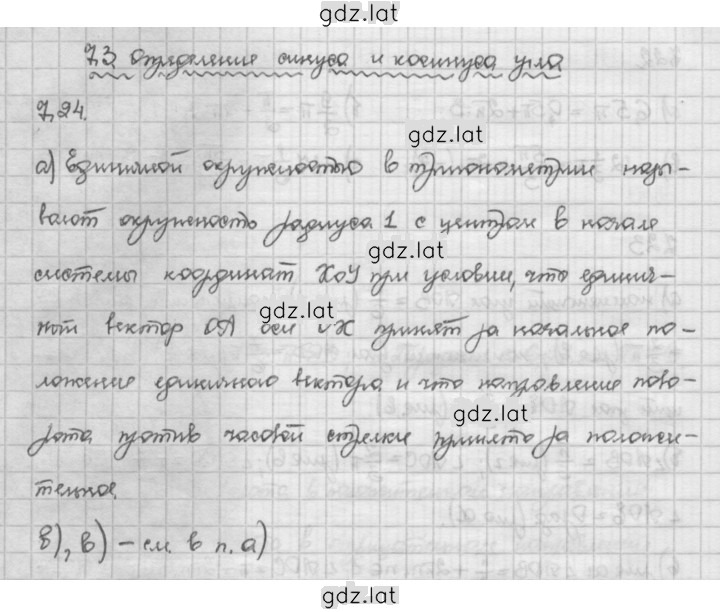 gdz.lat
7.3. Определение синуса и косинуса угла
7.24.
gdz.lat
а) Единичной окружностью в тригонометрии назы-
вают окружность радиуса 1 с центром в начале
gdz.lat
системы координат XOY при условии, что единич-
gdz.lat
ный вектор OA оси OX принят за начальное по-
ложение единичного вектора и что направление пово-
gdz.lat
рота против часовой стрелки принято за положи-
тельное.
б), в) – см. в п. а)
gdz.lat
gdz.lat